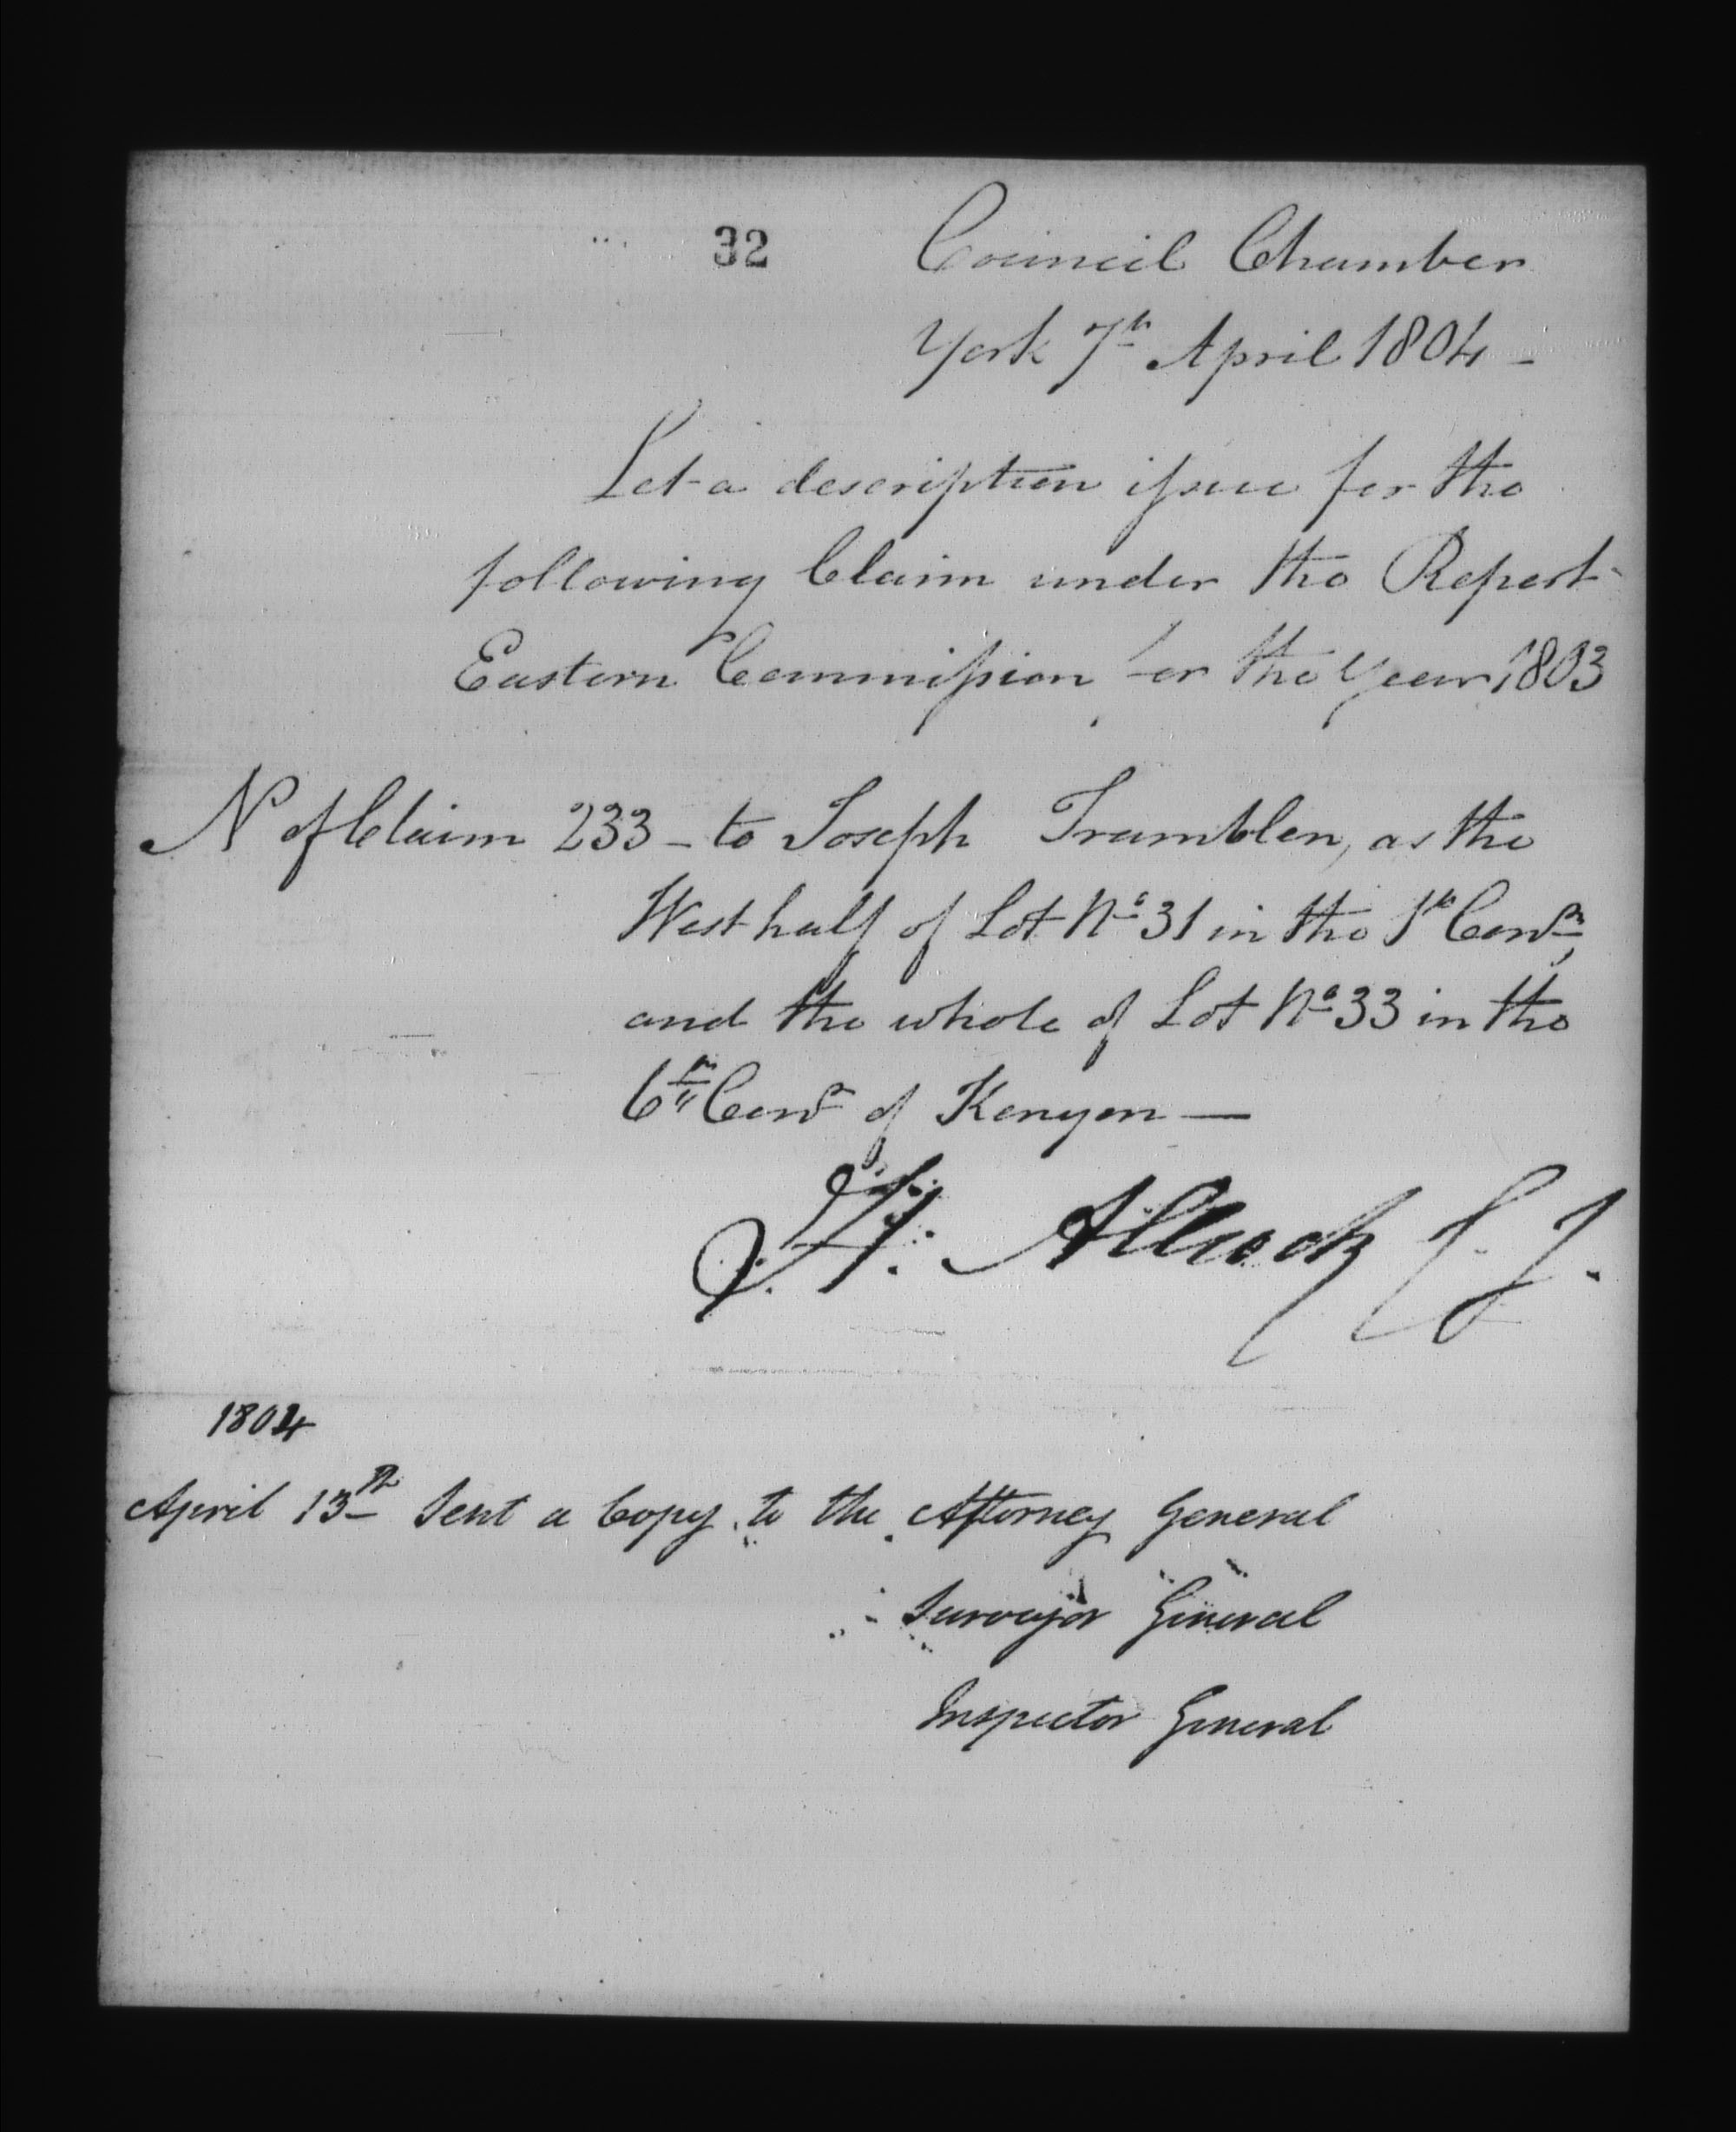 32 Council Chamber
York 7th April 1804 -
Let a description issue for the
following Claim under the Report
Eastern Commission for the Year 1803
No of Claim 233 - to Joseph Tramblen, as the
West half of Lot No 31 in the 1st Conn,
and the whole of Lot No 33 in the
6th Conn of Kenyon —
H. Allcock C. J.
1804
April 13th Sent a Copy to the Attorney General
Surveyor General
Inspector General